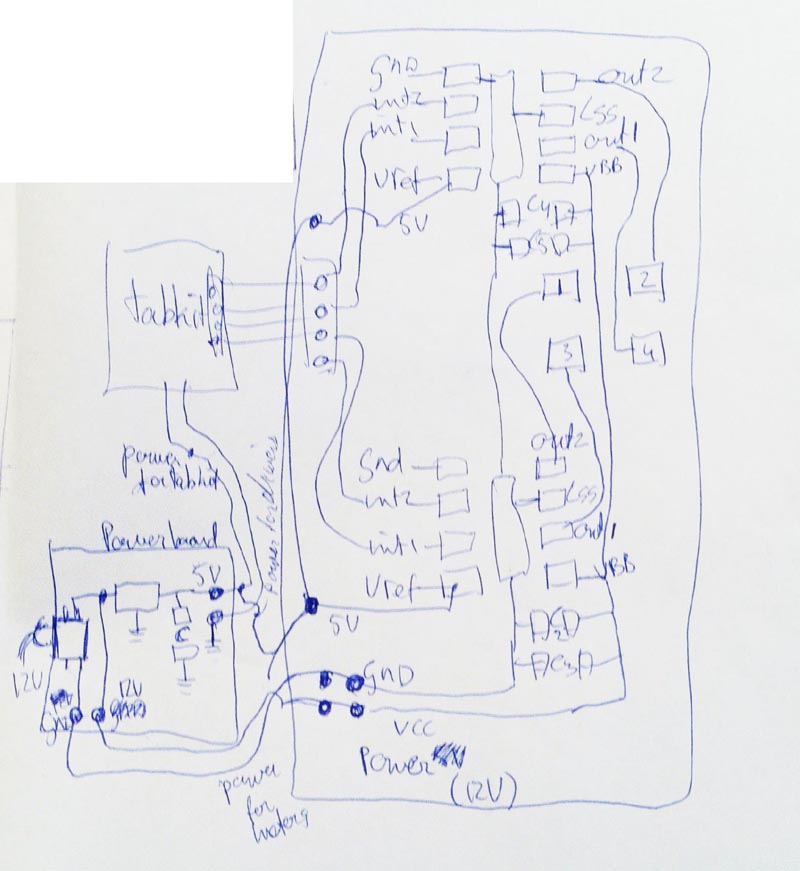 GND
out2
int2
LSS
int1
out1
Vref
VBB
5V
C4
C5
1
2
fabkit
3
4
power
for fabkit
Power for drivers
Gnd
out2
int2
LSS
int1
out1
Vref
VBB
Powerboard
5V
5V
C2
C
C3
12V
12V
GND
GND
VCC
Power
(12V)
power
for
motors